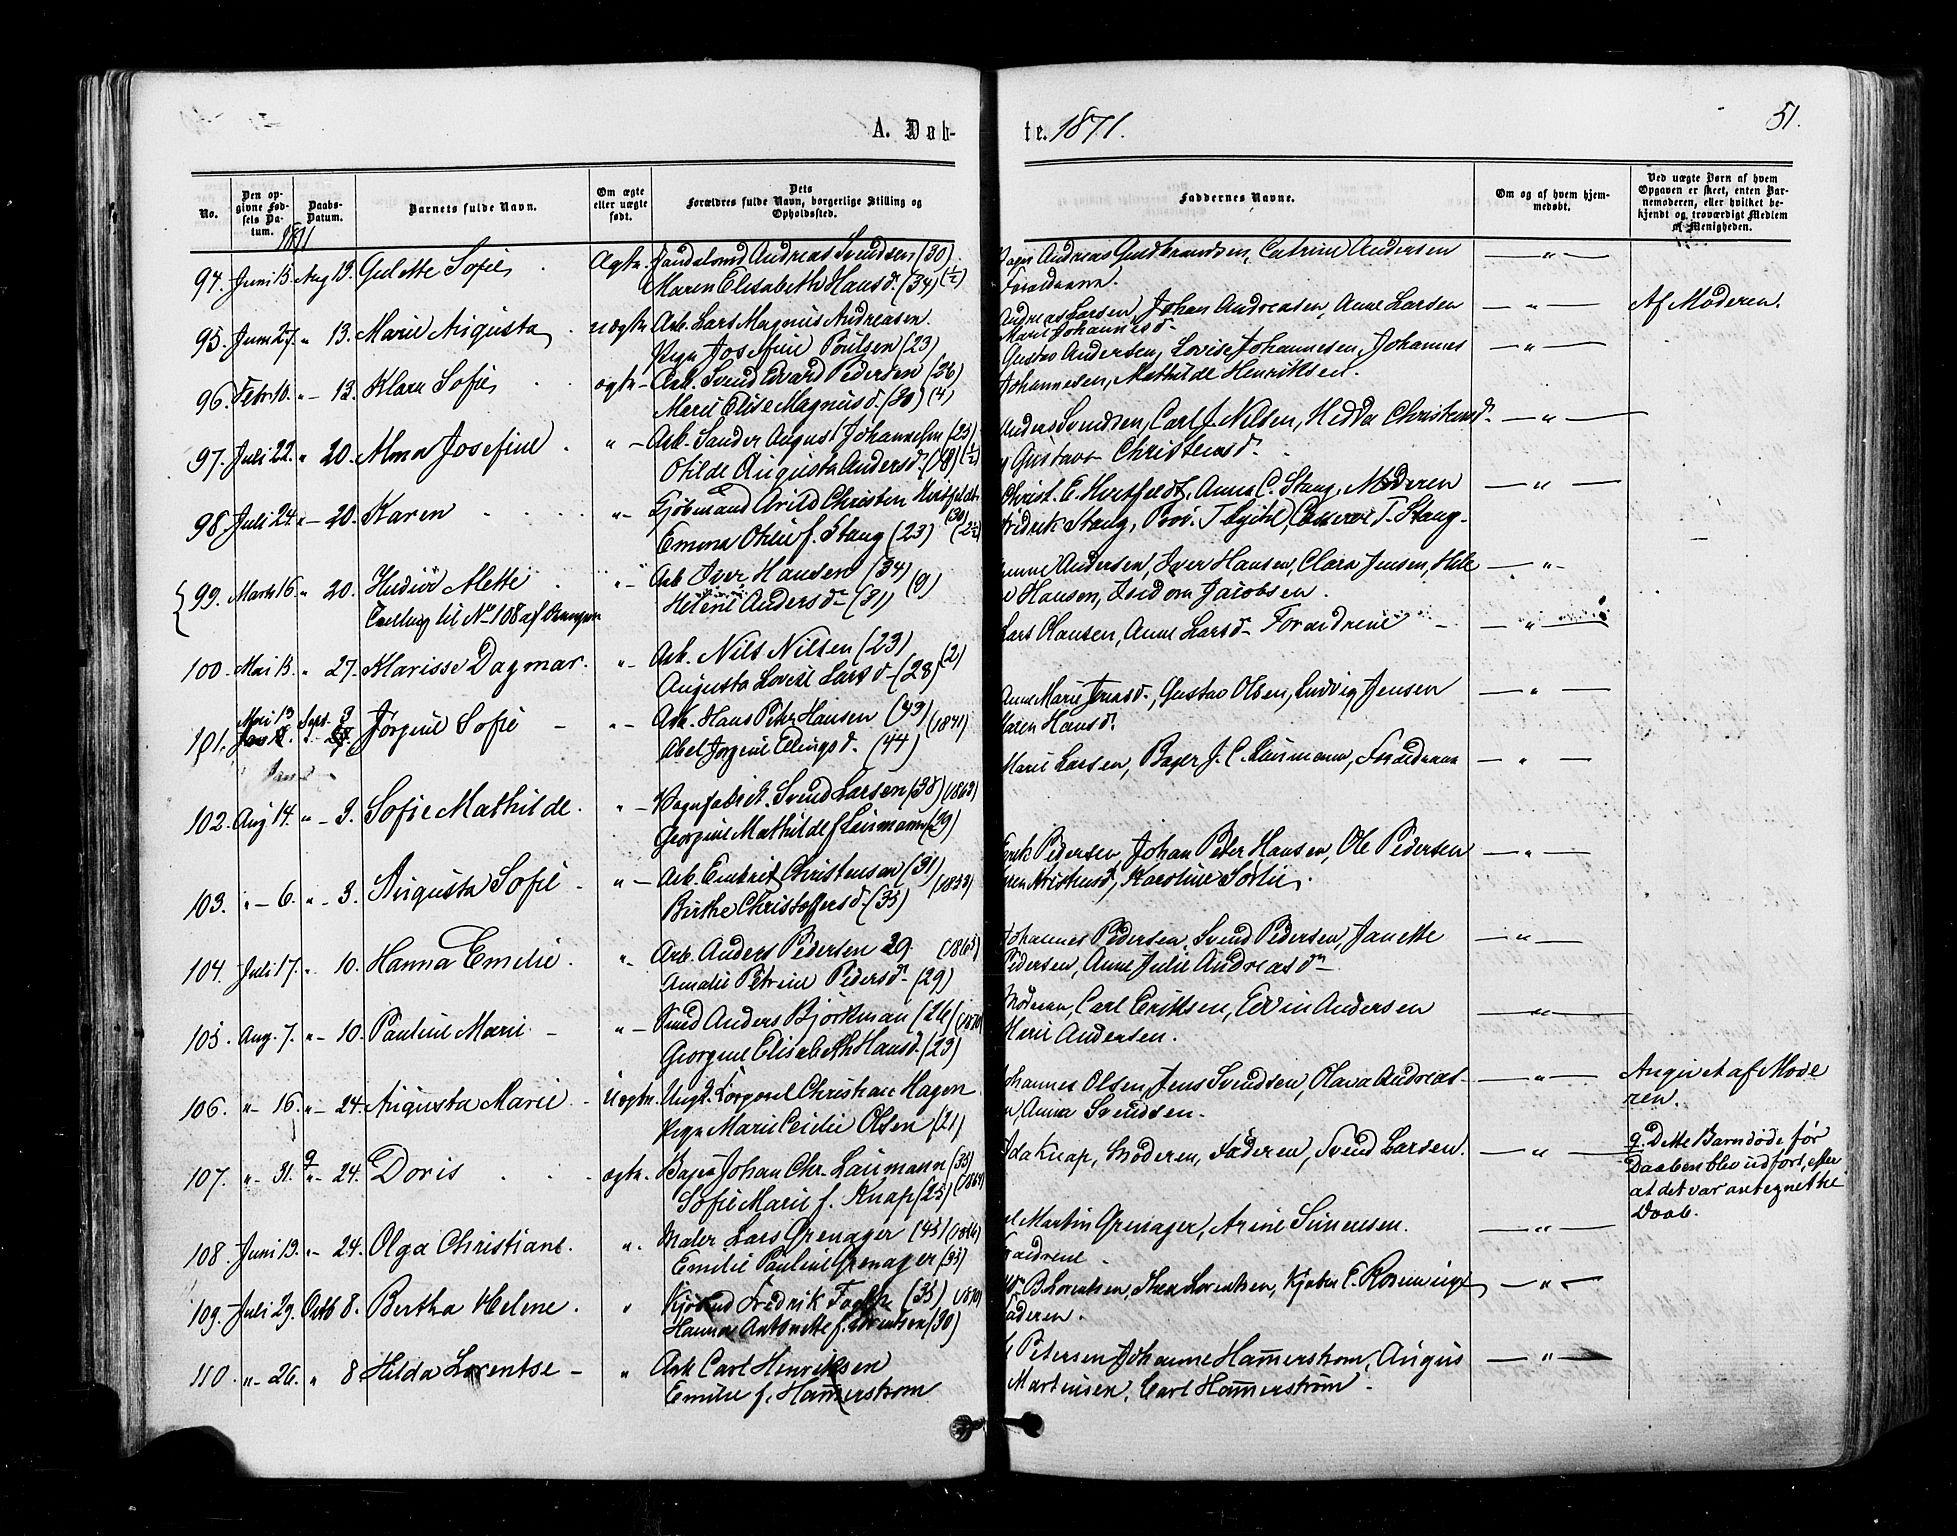 A. Døb-
te. 1871.
51.
No.
Den op-
givne Fød-
sels Da-
tum.
Daabs-
Datum.
Barnets fulde Navn.
Om ægte
eller uægte
født.
Dets
Forældres fulde Navn, borgerlige Stilling og
Opholdssted.
Faddernes Navne.
Om og af hvem hjem-
medøbt.
Ved uægte Børn af hvem
Opgaven er skeet, enten Bar-
nemoderen, eller hvilket be-
kjendt og troværdigt Medlem
af Menigheden.
1871
94. Juni 13. Aug 13. Gulette Sofie Ægte. Andreas Svendsen (30) Andreas Gulbrandsen, Catrine Andersen — " —
Maren Elisabeth Hansd. (34) (½) Forældrene.
95. Juni 27. " 13. Marie Augusta uægte Arb. Lars Magnus Andreasen. Andreas Larsen, Johan Andreasen, Anne Larsen — " — Af Moderen.
Pige Josefine Poulsen (23) Marie Johannesd.
96. Febr 10. " – 13. Klara Sofie ægte – Arb. Svend Edvard Pedersen (26) Gustav Andersen, Lovise Johannesen, Johannes — " —
Marie Elise Magnusd. (30) (4) Johannesen, Mathilde Henriksen.
97. Juli 22. " 20. Alma Josefine " – Arb. Sander August Johannesen (25) Anders Svendsen, Carl J. Nilsen, Hedda Christensd. — " —
Otilde Augusta Andersd. (18) (½) Gustava Christensd.
98. Juli 24. " – 20. Karen " – Kjøbmand Arild Christen Hertfeldt (30) Christ. E. Hertfeldt, Anna C. Stang, Moderen — " —
Emma Otilie f. Stang (23) (2½) Fredrik Stang, T. Stang.
99. Marts 16. " 20. Alette " – Arb Iver Hansen (34) Andersen, Iver Hansen, Clara Jensen, — " –
Tvilling til No 108 af Drengene Helene Andersd – (31) (9) Hansen, Isidora Jacobsen.
100. Mai 13. " 27. Marisse Dagmar. " – Arb. Nils Nilsen (23) Lars Hansen, Anne Larsd – Forældrene — " —
Augusta Lovise Larsd – (28) (2)
101. Mai 13 Sept. 3 Jørgine Sofie – " – Arb. Hans Peter Hansen (43) (1841) Anne Marie Jensd., Gustav Olsen, Ludvig Jensen — " —
Abel Jørgine Ellingsd. (44) Maren Hansd.
102. Aug 14. " – 3. Sofie Mathilde. " – Vognfabrik. Svend Larsen (38) (1863) Marie Larsen, Bager J. C. Laumann, Forældrene — " —
Georgine Mathilde f Laumann (29)
103. " – 6. " – 3. Augusta Sofie – " – Arb. Embret Christensen (31) Erik Pedersen, Johan Peter Hansen, Ole Pedersen — " —
Birthe Christoffersd. (35) Kristensd, Karoline Sørlie.
104. Juli 17. " 10. Hanna Emelie. " Arb. Anders Pedersen 29. (1865) Johannes Pedersen, Svend Pedersen, Janette — " —
Amalie Petrine Pedersd – (29) Pedersen, Anne Julie Andreasd –
105. Aug. 7. " – 10. Pauline Marie – " – Smed Anders Bjørkman (26) (1870) Moderen, Carl Eriksen, Edvin Andersen — " —
Georgine Elisabeth Hansd. (23) Marie Andersen.
106. " – 16. " – 24. Augusta Marie – Uægte. Ungk. Korporal Christian Hagen Johannes Olsen, Jens Svendsen, Olava Andreas- — " — Angivet af Mode
Pige Marie Cecilie Olsen (21) en, Anna Svendsen. ren.
107. " – 31. 9 " – 24. Doris ægte. Bager Johan Chr. Laumann (35) Ida Knap, Moderen, Faderen, Svend Larsen. — " — 9. Dette Barn døde før
Sofie Marie f. Knap (25) (1869) Daaben blev udført, efter
at det var antegnet til
Daab.
108. Juni 13. " – 24. Olga Christiane. " Maler Lars Grenager (45) Martin Grenager, Arine Simensen. — " —
Emilie Pauline Grenager (35) Forældrene
109. Juli 29. Octb 8. Bertha Helene. " Kjøbmd Fredrik (35) (1870) B. Lorentsen, Thea Lorentsen, Kjøbm E. — " –
Hanna Antonette f. Lorentsen (30) Faderen.
110. " – 26. " 8 Hilda Lorentse – " Arb Carl Henriksen Petersen Johanne Hammerstrøm, August — " —
Emilie f. Hammerstrøm Martinsen, Carl Hammerstrøm.